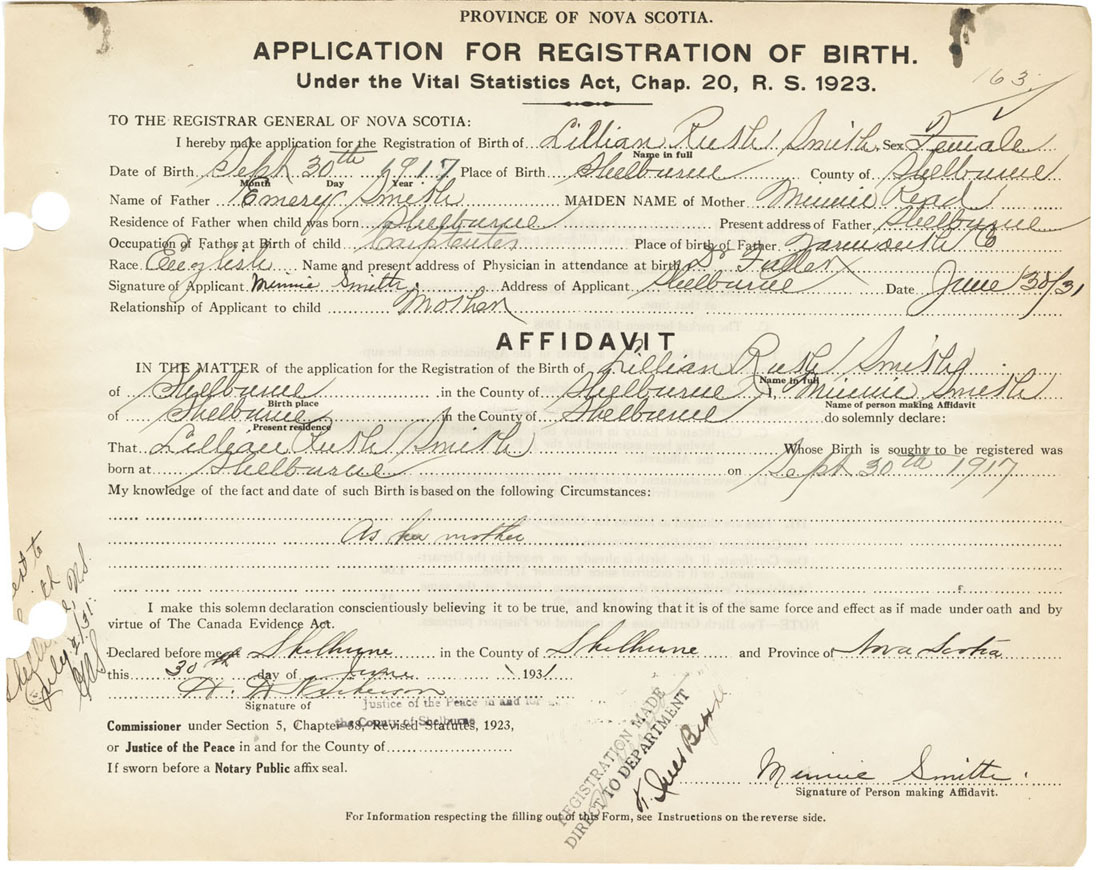 PROVINCE OF NOVA SCOTIA.
APPLICATION FOR REGISTRATION OF BIRTH.
Under the Vital Statistics Act, Chap. 20, R. S. 1923.
163
TO THE REGISTRAR GENERAL OF NOVA SCOTIA:
I hereby make application for the Registration of Birth of Lillian Ruth Smith Sex Female
Name in full
Date of Birth Sept 30th 1917 Place of Birth Shelburne County of Shelburne
Month Day Year
Name of Father Emery Smith MAIDEN NAME of Mother Minnie Read
Residence of Father when child was born Shelburne Present address of Father Shelburne
Occupation of Father at Birth of child Carpenter Place of birth of Father Yarmouth Co
Race English Name and present address of Physician in attendance at birth Dr Fuller
Signature of Applicant Minnie Smith. Address of Applicant Shelburne Date June 30/31
Relationship of Applicant to child Mother
AFFIDAVIT
IN THE MATTER of the application for the Registration of the Birth of Lillian Ruth Smith
Name in full
of Shelburne in the County of Shelburne I, Minnie Smith
Birth place Name of person making Affidavit
of Shelburne in the County of Shelburne do solemnly declare:
Present residence
That Lillian Ruth Smith Whose Birth is sought to be registered was
born at Shelburne on Sept 30th 1917
My knowledge of the fact and date of such Birth is based on the following Circumstances:
As her mother
I make this solemn declaration conscientiously believing it to be true, and knowing that it is of the same force and effect as if made under oath and by
virtue of The Canada Evidence Act.
Declared before me at Shelburne in the County of Shelburne and Province of Nova Scotia
this 30th day of June 1931
Signature of Justice of the Peace in and for
the County of Shelburne
Commissioner under Section 5, Chapter 38, Revised Statutes, 1923,
or Justice of the Peace in and for the County of
If sworn before a Notary Public affix seal.
REGISTRATION MADE
DIRECT TO DEPARTMENT
Minnie Smith.
Signature of Person making Affidavit.
For Information respecting the filling out of this Form, see Instructions on the reverse side.